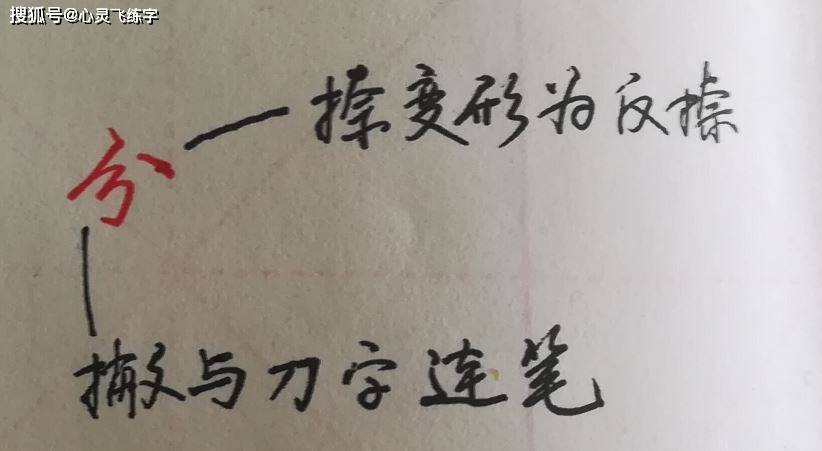 搜狐号@心灵飞练字
捺变形为反捺
分
撇与刀字连笔